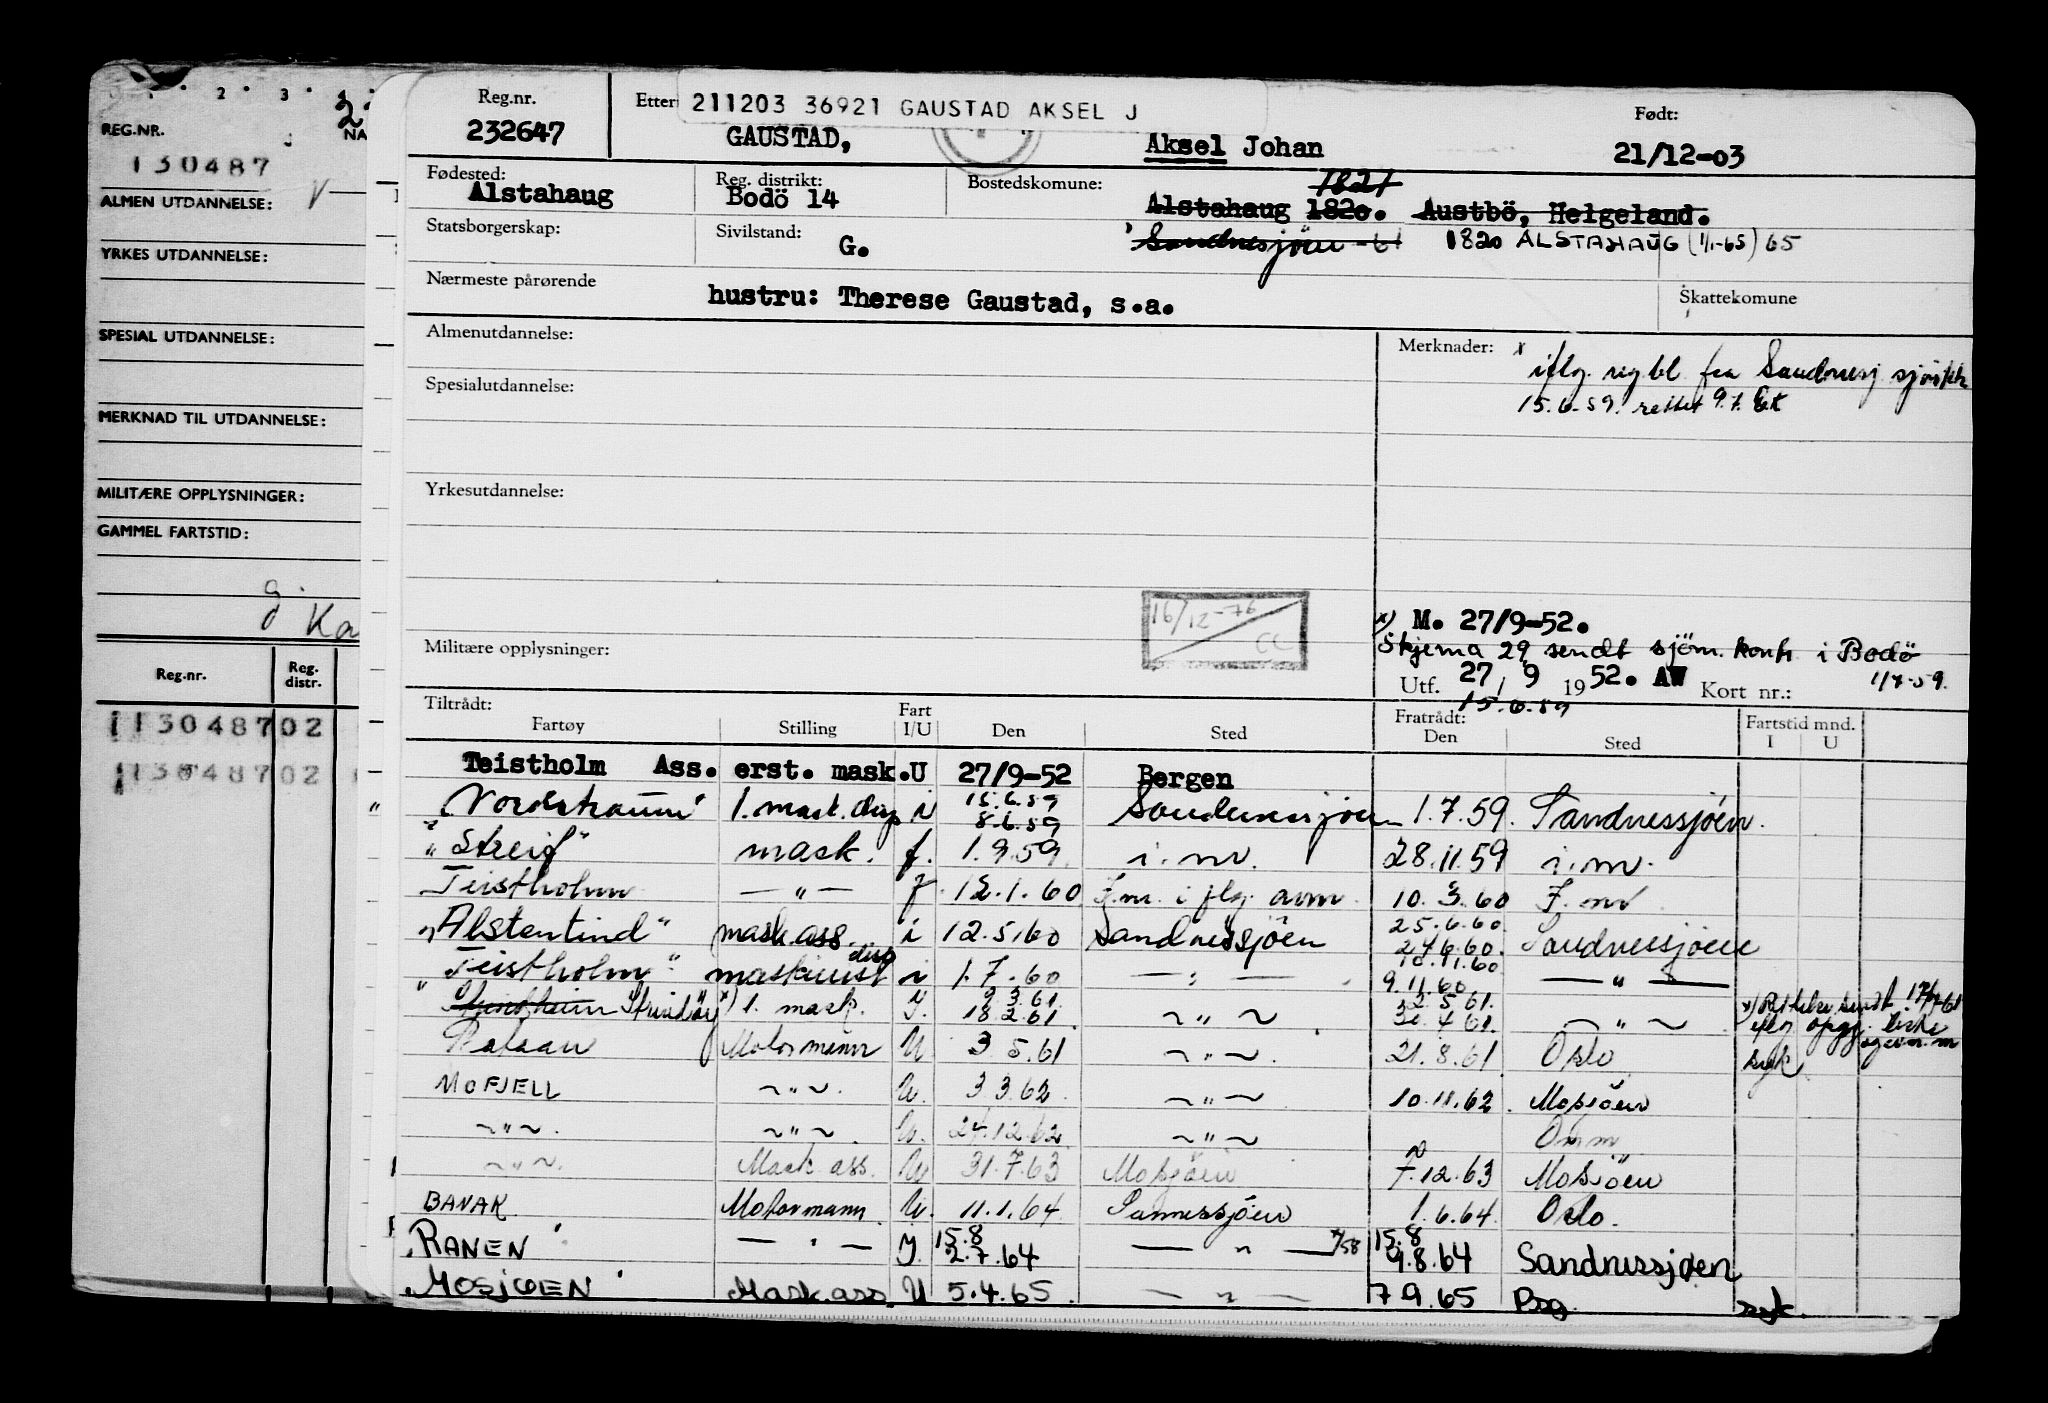 REG.NR.
130487
ALMEN UTDANNELSE:
YRKES UTDANNELSE:
SPESIAL UTDANNELSE:
MERKNAD TIL UTDANNELSE:
MILITÆRE OPPLYSNINGER:
GAMMEL FARTSTID:
Reg.nr. Reg. distr.
113048702
113048702
Reg.nr. Etter 211203 36921 GAUSTAD AKSEL J Født:
232647 GAUSTAD, Aksel Johan 21/12-03
Fødested: Reg. distrikt: Bostedskomune: 1821
Alstahaug Bodö 14 Alstahaug 1820. Austbö, Helgeland.
Statsborgerskap: Sivilstand: G. Sandnessjöen - 61 1820 ALSTAHAUG (1/1-65) 65
Nærmeste pårørende hustru: Therese Gaustad, s.a. Skattekomune
Almenutdannelse: Merknader: x
iflg. reg.bl. fra Sandnesj. sjøm.k.
Spesialutdannelse: 15.6.59. rettet 9.7.
Yrkesutdannelse:
16/12-76
x) M. 27/9-52.
Militære opplysninger: Skjema 29 sendt sjöm. kont. i Bodö
Utf. 27/9 1952. AW Kort nr.: 1/7-59.
15.6.59
Tiltrådt: Fratrådt: Fartstid mnd.
Fartøy Stilling Fart I/U Den Sted Den Sted I U
Teistholm Ass. erst. mask. U 27/9-52 Bergen
"Nordstraum" 1. mask. disp i 15.6.59 8.6.59 Sandnessjöen 1.7.59. Sandnessjöen.
"Streif" mask. f. 1.9.59 i.m. 28.11.59 i.m.
Teistholm — " — 12.1.60 F.m. iflg. 10.3.60 F.m.
"Alstentind" mask.ass. i 12.5.60 Sandnessjöen 25.6.60 24.6.60. Sandnessjöen
"Teistholm" maskinist disp i 1.7.60 — " — 10.11.60 9.11.60 — " —
x) 1. mask. 9.3.61 18.2.61 ~ " ~ 2.5.61. 30.4.61. ~ " ~
Motormann U 3.5.61 ~ " ~ 21.8.61 Oslo syk
MOFJELL ~ " ~ U. 3.3.62 ~ " ~ 10.11.62 Mosjöen
~ " ~ ~ " ~ U. 27.12.62 ~ " ~ Omm
~ " ~ Mask ass. U 31.7.63 Mosjöen 7.12.63 Mosjöen
BANAK Motormann U. 11.1.64 Sannessjöen 1.6.64. Oslo.
RANEN — " — 15.8 2.7.64 — " — 15.8 9.8.64 Sandnessjøen
MOSJØEN Mask.ass. U 5.4.65. — " — 7 9.65 Bg. syk.